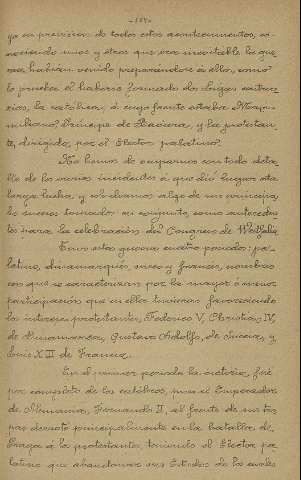 ya en previsión de todos estos acontecimientos, co-
nociendo unos y otros que era inevitable la gue-
rra, habían venido preparándose á ella, como
lo prueba el haberse formado dos ligas contra-
rias, la católica, á cuyo frente estaba Maxi-
miliano, Príncipe de Baviera, y la protestan-
te, dirigida, por el Elector palatino.
No hemos de ocuparnos con todo deta-
lle de los varios incidentes á que dió lugar esta
larga lucha, y si diremos algo de sus principa-
les sucesos tomados en conjunto, como anteceden-
tes para la celebración del Congreso de Westfalia
Tuvo esta guerra cuatro periodos: pa-
latino, dinamarqués, sueco y francés, nombres
con que se caracterizan por la mayor ó menor
participación que en ellos tuvieron favoreciendo
los intereses protestantes, Federico V, Christian IV,
de Dinamarca, Gustavo Adolfo, de Suecia, y
Luis XIII de Francia.
En el primer periodo la victoria, fué
por completo de los católicos, pues el Emperador
de Alemania, Fernando II, al frente de sus tro-
pas derrotó principalmente en la batalla de
Praga á los protestantes, teniendo el Elector pa-
latino que abandonar sus Estados de los cuales